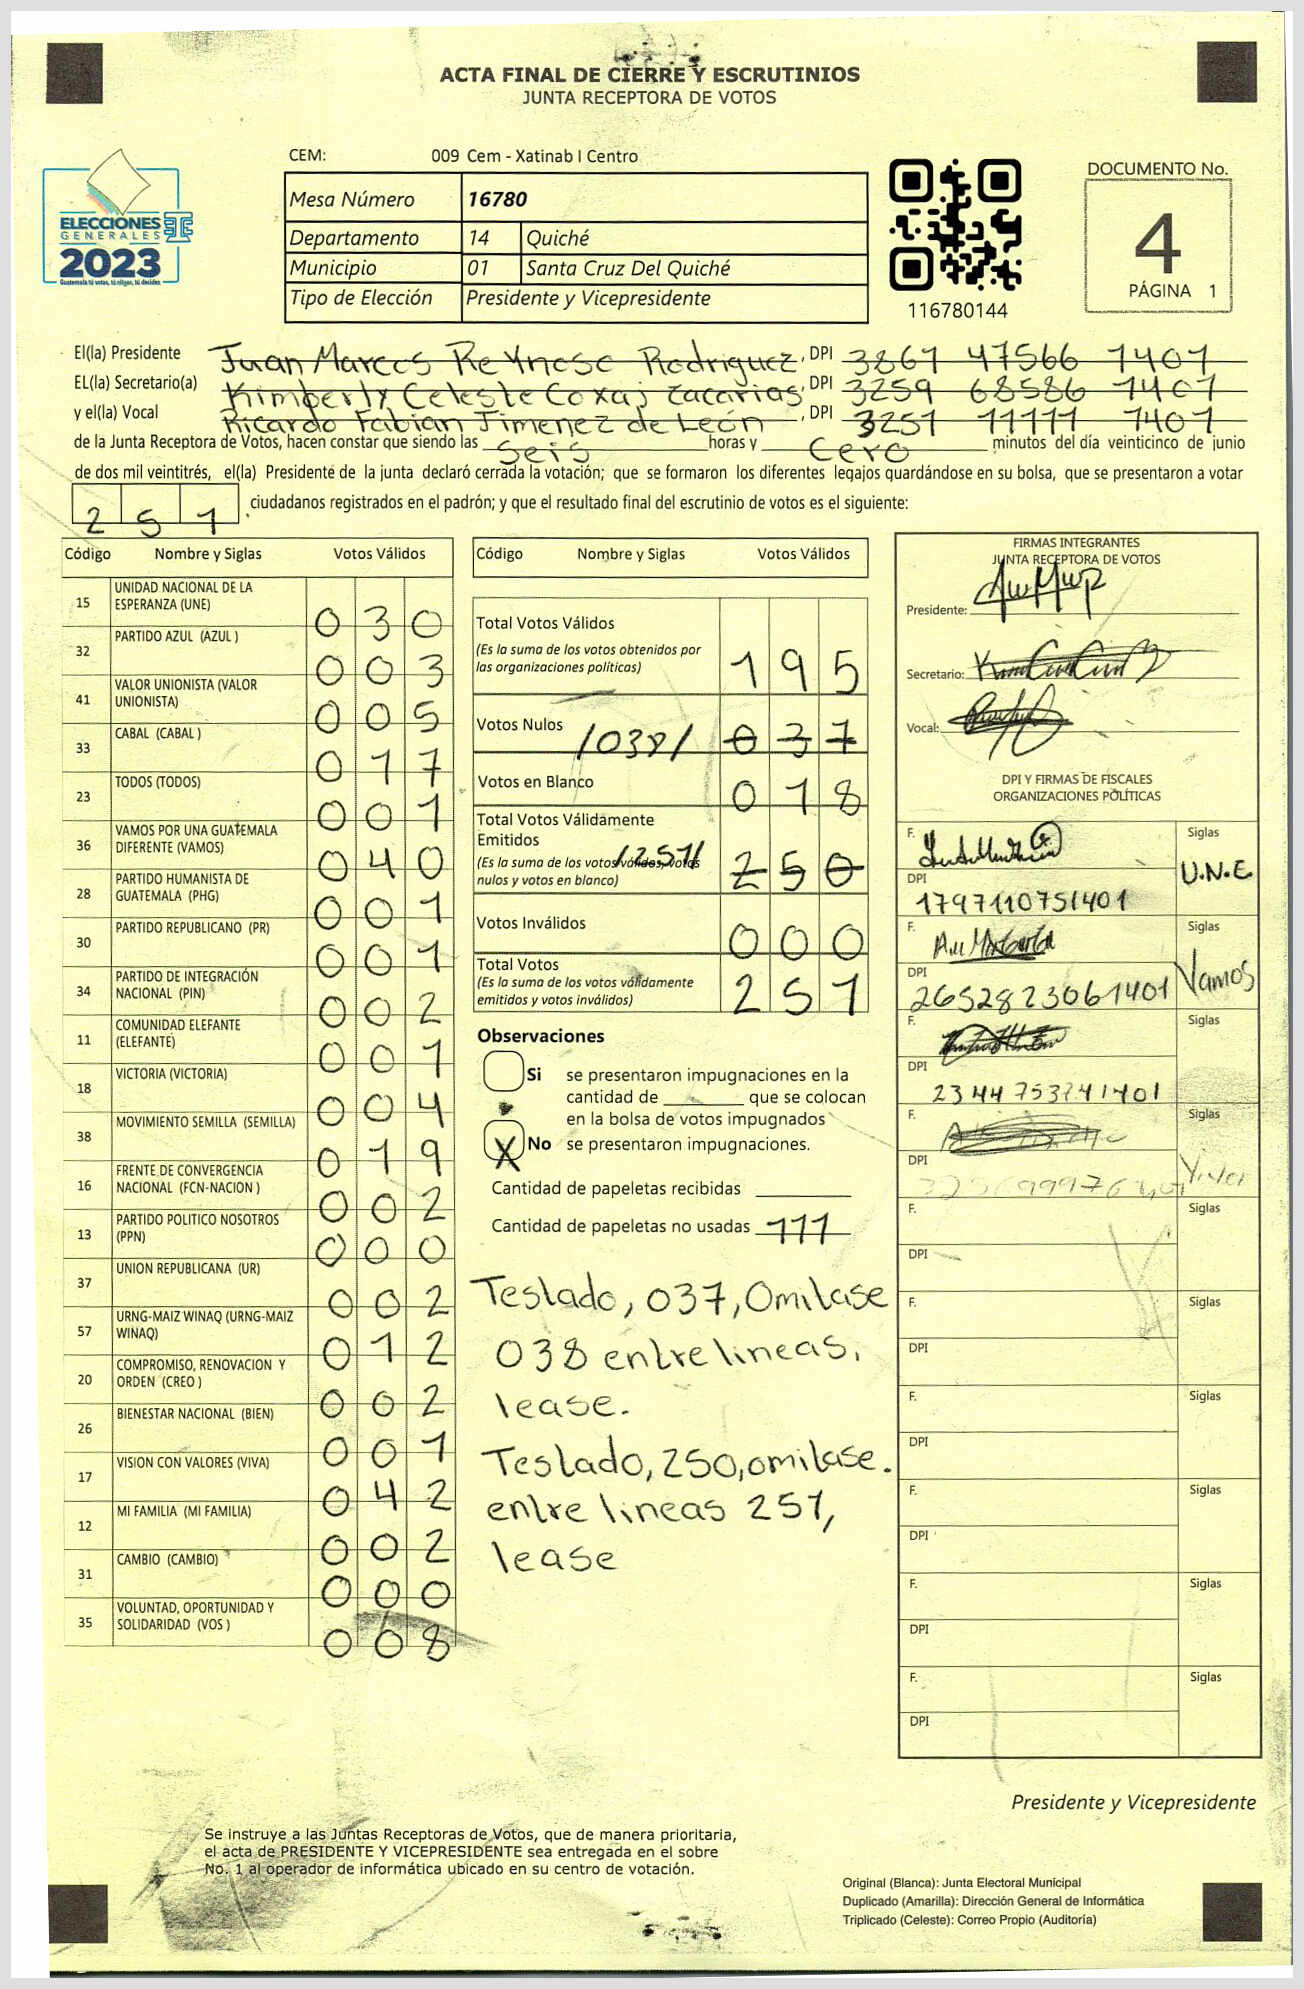 ACTA FINAL DE CIERRE Y ESCRUTINIOS
JUNTA RECEPTORA DE VOTOS
CEM: 009 Cem - Xatinab I Centro
Mesa Número 16780
Departamento 14 Quiché
Municipio 01 Santa Cruz Del Quiché
Tipo de Elección Presidente y Vicepresidente
ELECCIONES
GENERALES
2023
Guatemala tú votas, tú eliges, tú decides
116780144
DOCUMENTO No.
4
PÁGINA 1
El(la) Presidente Juan Marcos Reynoso Rodriguez, DPI 3867 47566 1401
EL(la) Secretario(a) Kimberly Celeste Coxaj Zacarias, DPI 3259 68586 1401
y el(la) Vocal Ricardo Fabian Jimenez de León, DPI 3251 11111 1401
de la Junta Receptora de Votos, hacen constar que siendo las Seis horas y Cero minutos del día veinticinco de junio
de dos mil veintitrés, el(la) Presidente de la junta declaró cerrada la votación; que se formaron los diferentes legajos guardándose en su bolsa, que se presentaron a votar
251 ciudadanos registrados en el padrón; y que el resultado final del escrutinio de votos es el siguiente:
Código Nombre y Siglas Votos Válidos
15 UNIDAD NACIONAL DE LA ESPERANZA (UNE) 030
32 PARTIDO AZUL (AZUL ) 003
41 VALOR UNIONISTA (VALOR UNIONISTA) 005
33 CABAL (CABAL ) 017
23 TODOS (TODOS) 001
36 VAMOS POR UNA GUATEMALA DIFERENTE (VAMOS) 040
28 PARTIDO HUMANISTA DE GUATEMALA (PHG) 001
30 PARTIDO REPUBLICANO (PR) 001
34 PARTIDO DE INTEGRACIÓN NACIONAL (PIN) 002
11 COMUNIDAD ELEFANTE (ELEFANTE) 001
18 VICTORIA (VICTORIA) 004
38 MOVIMIENTO SEMILLA (SEMILLA) 019
16 FRENTE DE CONVERGENCIA NACIONAL (FCN-NACION ) 002
13 PARTIDO POLITICO NOSOTROS (PPN) 000
37 UNION REPUBLICANA (UR) 002
57 URNG-MAIZ WINAQ (URNG-MAIZ WINAQ) 012
20 COMPROMISO, RENOVACION Y ORDEN (CREO ) 002
26 BIENESTAR NACIONAL (BIEN) 001
17 VISION CON VALORES (VIVA) 042
12 MI FAMILIA (MI FAMILIA) 002
31 CAMBIO (CAMBIO) 000
35 VOLUNTAD, OPORTUNIDAD Y SOLIDARIDAD (VOS ) 008
Código Nombre y Siglas Votos Válidos
Total Votos Válidos
(Es la suma de los votos obtenidos por
las organizaciones políticas) 195
Votos Nulos /038/ 037
Votos en Blanco 018
Total Votos Válidamente
Emitidos
(Es la suma de los votos válidos, votos
nulos y votos en blanco) /251/ 250
Votos Inválidos 000
Total Votos
(Es la suma de los votos válidamente
emitidos y votos inválidos) 251
Observaciones
Si se presentaron impugnaciones en la
cantidad de ________ que se colocan
en la bolsa de votos impugnados
X No se presentaron impugnaciones.
Cantidad de papeletas recibidas
Cantidad de papeletas no usadas 111
Teslado, 037, Omitase
038 entre lineas,
lease.
Teslado, 250, omitase.
entre lineas 251,
lease
FIRMAS INTEGRANTES
JUNTA RECEPTORA DE VOTOS
Presidente:
Secretario:
Vocal:
DPI Y FIRMAS DE FISCALES
ORGANIZACIONES POLÍTICAS
F. Siglas
U.N.E
DPI 1797110751401
F. Siglas
Vamos
DPI 2652823061401
F. Siglas
DPI 2344753241401
F. Siglas
DPI
F. Siglas
DPI
F. Siglas
DPI
F. Siglas
DPI
F. Siglas
DPI
F. Siglas
DPI
F. Siglas
DPI
Presidente y Vicepresidente
Se instruye a las Juntas Receptoras de Votos, que de manera prioritaria,
el acta de PRESIDENTE Y VICEPRESIDENTE sea entregada en el sobre
No. 1 al operador de informática ubicado en su centro de votación.
Original (Blanca): Junta Electoral Municipal
Duplicado (Amarilla): Dirección General de Informática
Triplicado (Celeste): Correo Propio (Auditoría)